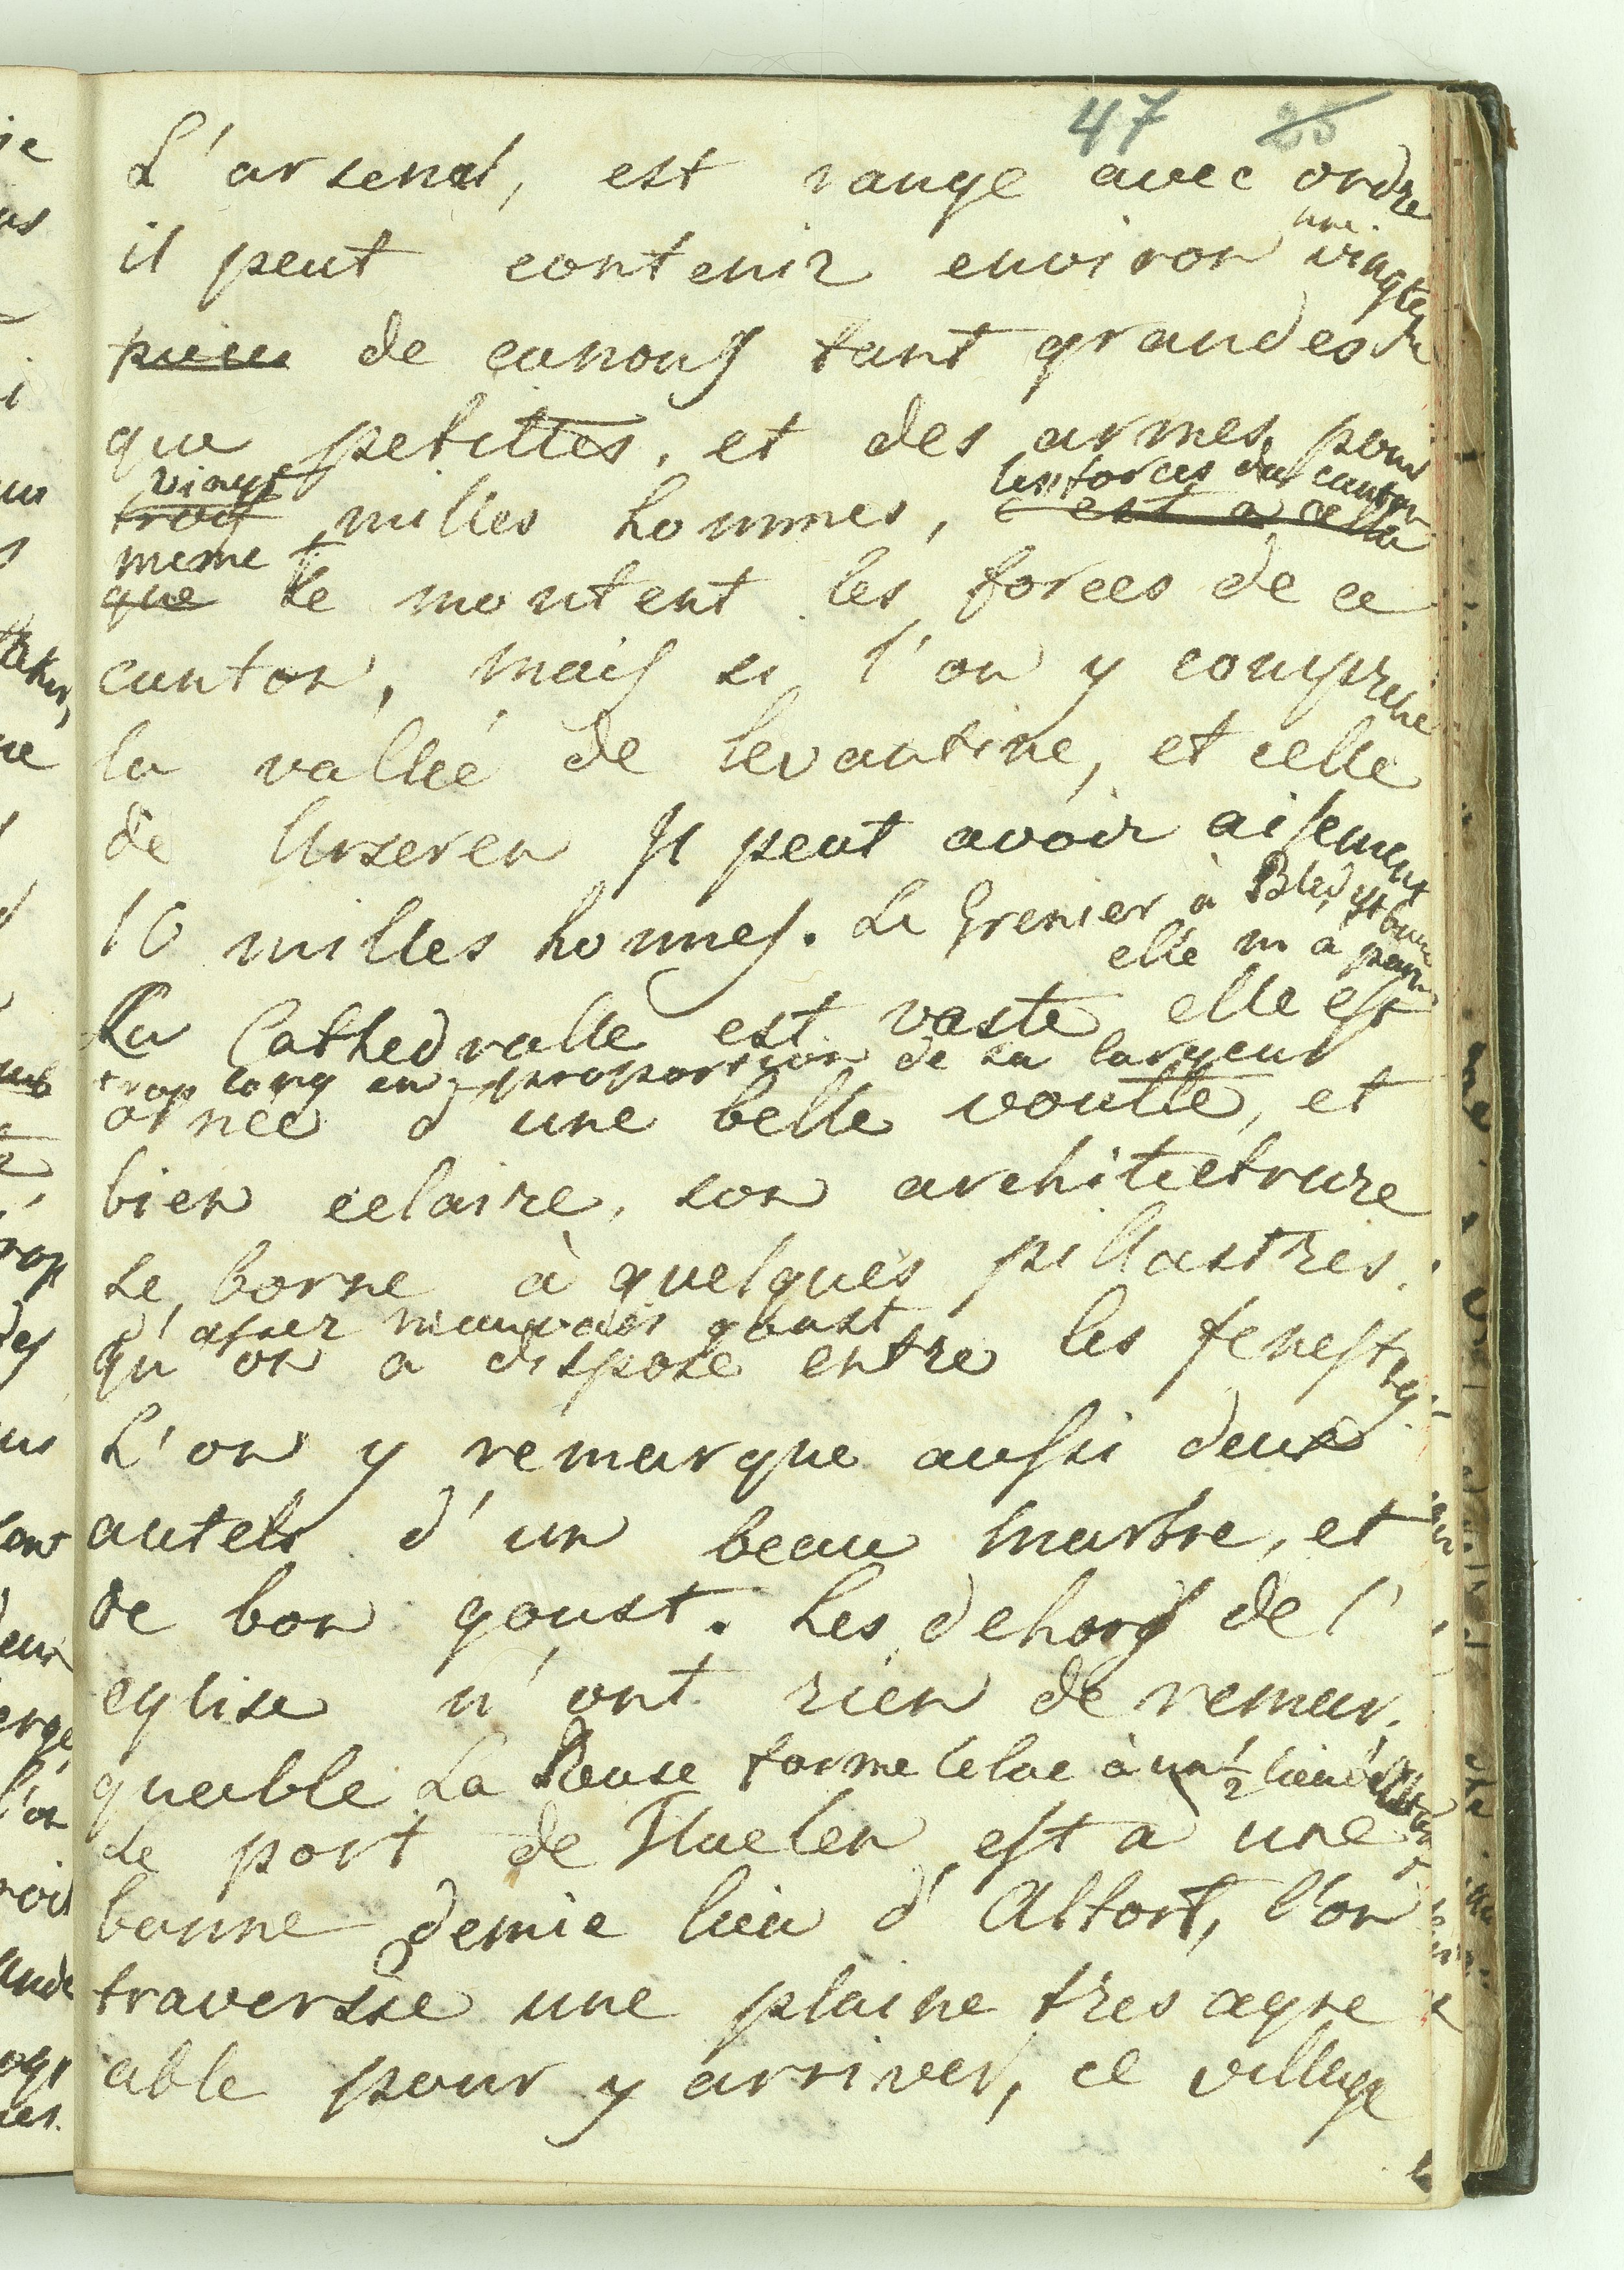 47 25
L'arsenal, est range avec ordre
une
il peut contenir environ vingtes
de canons tant grandes
que petittes, et des armes pour
vingt les forces du canton
trois milles hommes, c est a cella
meme
que se montent les forces de ce
canton, mais si l'on y comprene
la vallée de Levantine, et celle
de Urseren Il peut avoir aisement
16 milles hommes. Le Grenier à Bled est beau
elle m'a paru
La Cathedralle est vaste elle est
trop long en proportion de sa largeur
ornée d'une belle voutte, et
bien eclaire, son architectrure
se borne à quelques pillastres.
d'assez mauvais goust
qu'on a dispose entre les fenestres
L'on y remarque aussi deux
autels d'un beau marbre, et
de bon goust. Les dehors de l'
eglise n'ont rien de remar,
quable La Reuse forme le lac à un 1/2 lieu d'
Le port de Fluelen est a une
bonne demie lieu d'Altort, l'on
traversse une plaine tres agre
able pour y arriver, ce village